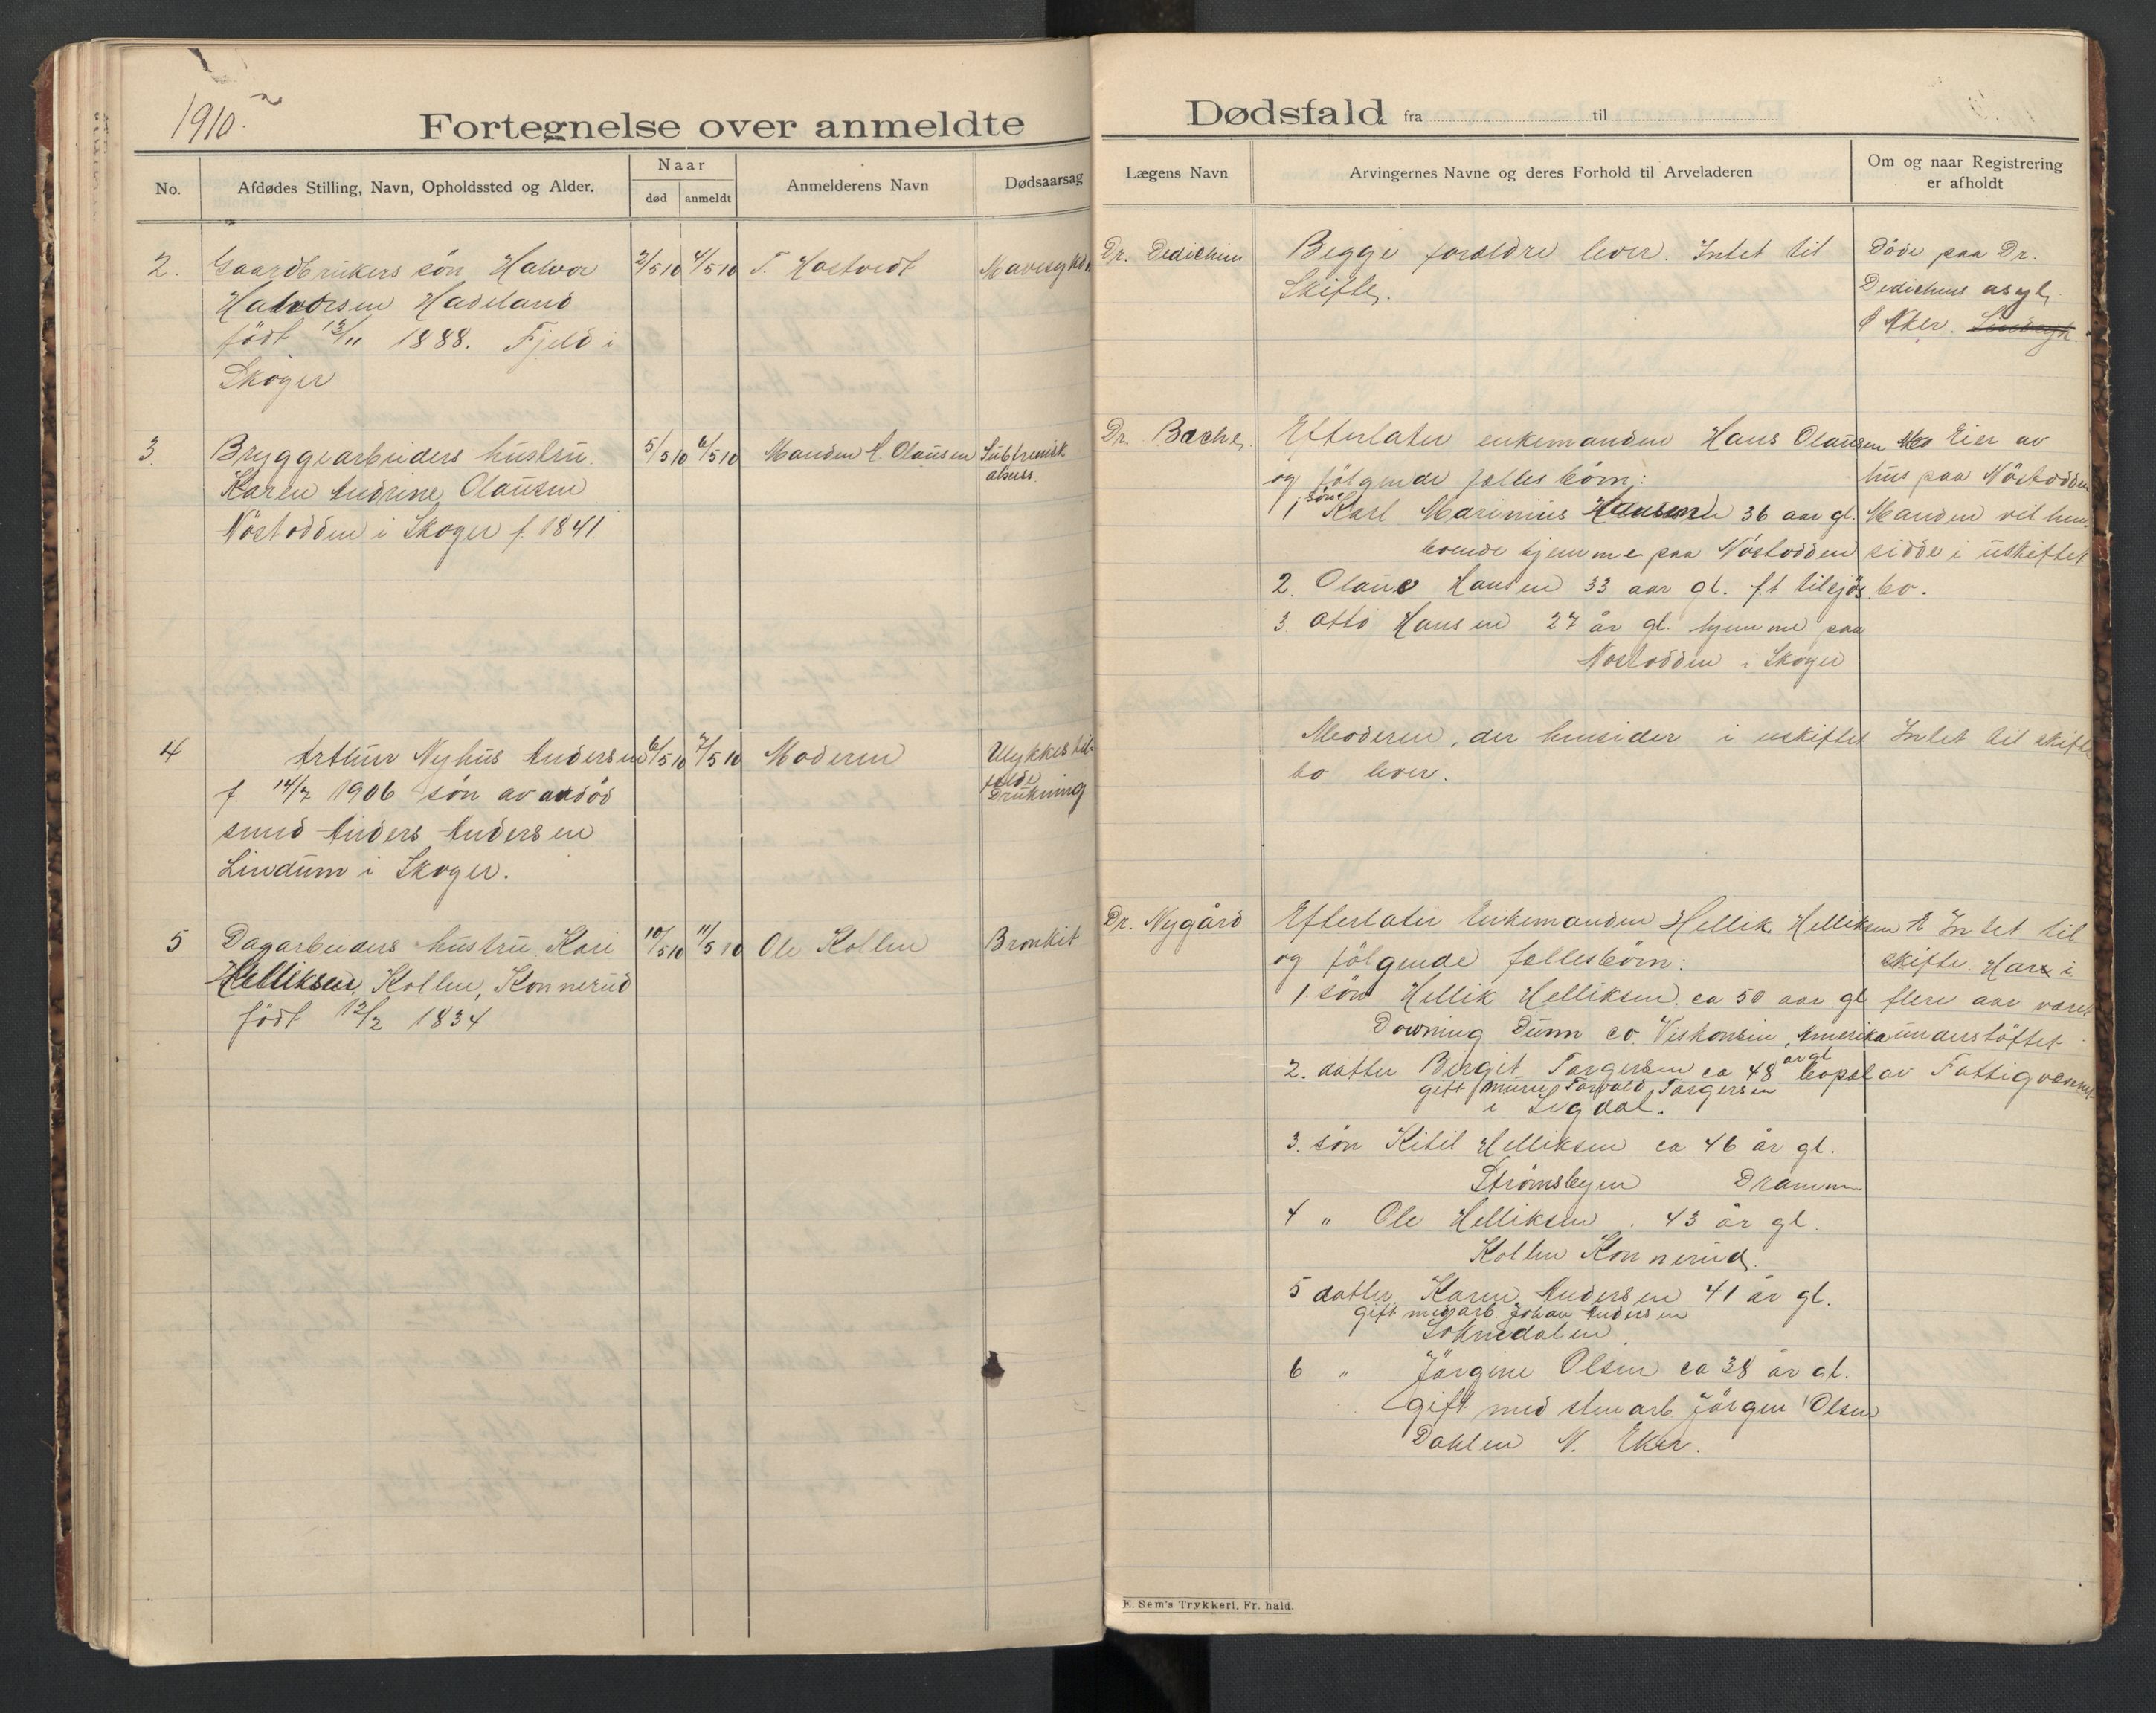 1910.
Fortegnelse over anmeldte
No.
Afdødes Stilling, Navn, Opholdssted og Alder.
Naar
død
anmeldt
Anmelderens Navn
Dødsaarsag
2.
Gaardbrukers søn Halvor
Halvorsen Hadeland
født 13/11 1888. Fjeld i
Skoger
2/5 10
4/5 10
T. Hostvedt
3.
Bryggearbeiders hustru
Karen Andrine Olausen
Nöstodden i Skoger f. 1841
5/5 10
6/5 10
Manden H. Olausen
4
Arthur Nyhus Andersen
f. 14/7 1906 søn av avdöd
smed Anders Andersen
Lindum i Skoger.
6/5 10
7/5 10
Moderen
Ulykkestil-
felde
Drukning
5
Dagarbeiders hustru Kari
Helliksen, Kollen, Konnerud
født 12/2 1834
10/5 10
11/5 10
Ole Kollen
Bronkit
Dødsfald fra til
Lægens Navn
Arvingernes Navne og deres Forhold til Arveladeren
Om og naar Registrering
er afholdt
Dr. Dedichen
Begge foreldre lever. Intet til
Skifte.
Døde paa Dr.
Dedichens asyl
i Aker.
Dr. Bache
Efterlater enkemanden Hans Olausen
og følgende felles børn:
1 søn Karl Marinius Hansen 36 aar gl.
boende hjemme paa Nöstodden
2. Olaus Hansen 33 aar gl. f.t tilsjøs
3. Otto Hansen 27 år gl. hjemme paa
Nostodden i Skoger
Eier av
hus paa Nöstodden
Manden vil hen-
sidde i uskiftet
bo.
Moderen, der hensider i uskiftet
bo lever.
Intet til skifte
Dr. Nygård
Efterlater Enkemanden Hellik Helliksen
og følgende fellesbørn:
1. søn Hellik Helliksen ca 50 aar gl
Downing Dunn co Viskonsin, Amerika
2. datter Birgit Torgersen ca 48 år gl bopæl
gift murer Torvald Torgersen
i Sigdal.
3. søn Kitil Helliksen ca 46 år gl.
Strømsbyen Drammen
4 " Ole Helliksen . 43 år gl.
Kollen Konnerud.
5 datter Karen Andersen 41 år gl.
gift med arb. Johan Andersen
Soknedalen
6 " Jörgine Olsen ca 38 år gl.
gift med stenarb Jörgen Olsen
Dahlen N. Eker.
Intet til
skifte. Har i
flere aar været
understöttet
av Fattigvæsenet
E. Sem's Trykkeri, Fr. hald.